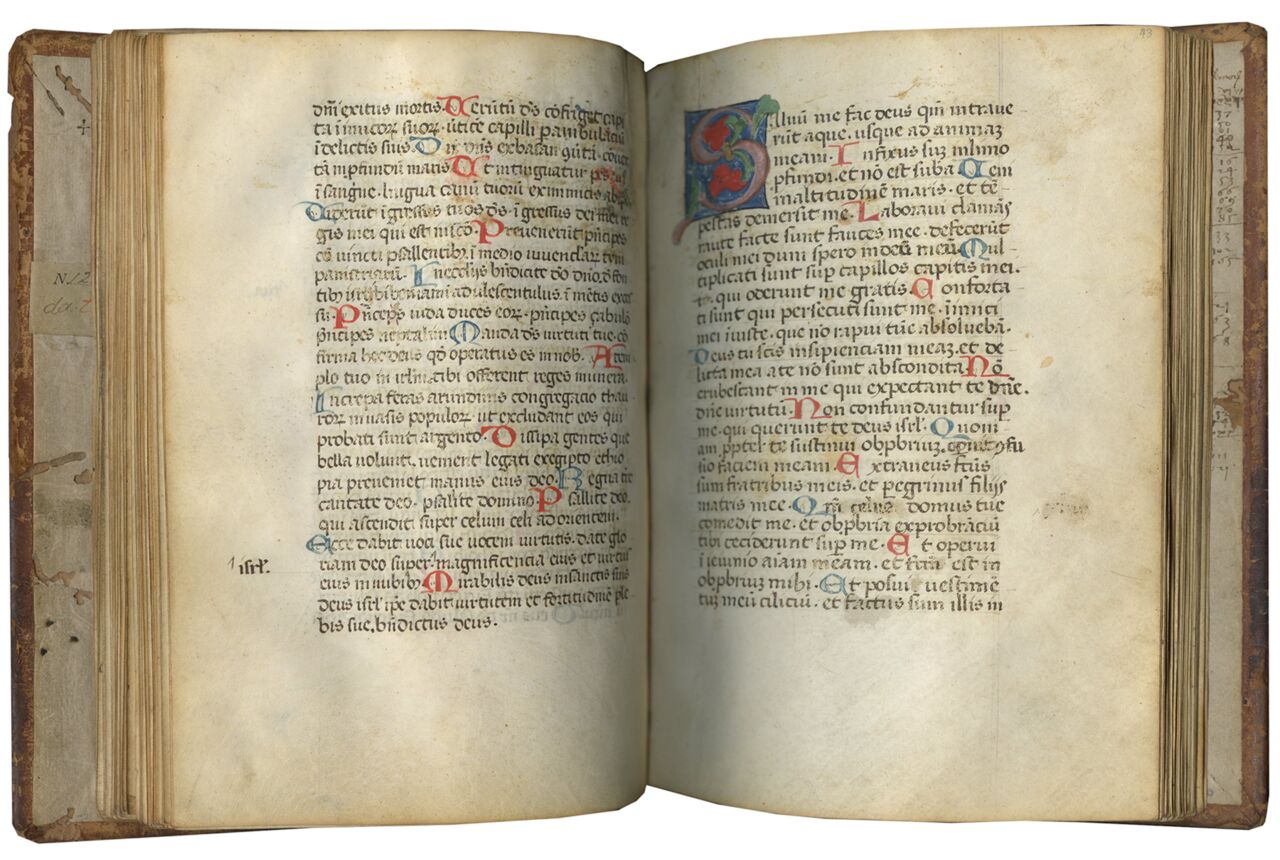 dñi exitus mortis. Uerūtn̄ ds̄ cōfriget capi
ta inimicoꝝ suoꝝ. ūticē capilli ꝑambulaciū
ī delictis suis. Dix dn̄s exbasan
ta in ꝓfundū maris. Ut intinguatur pes tuus
ī sangne. lingua canū tuoꝝ ex inimicis ab ipo.
Uiderūt īgressus tuos ds̄. ī gressus dei mei re
gis mei qui est in scō. Prevenerūt pn̄cipes
cō iuncti psallentibꝫ. ī medio iuvenclaꝝ tym
panistriaꝝ. In ecclijs bn̄dicite dō dn̄o. d̄ fon
tibꝫ isrl. ibi beniamī adulescentulus. ī mētis exces
su. Pn̄ceps iuda duces eoꝝ. pn̄cipes zabulō
pn̄cipes neptalim. Manda ds̄ virtuti tue. cō
firma hoc deus qd̄ operatus es in nob. A tem
plo tuo in irlm. tibi offerent reges munera.
Increpa feras arundinis congregacio thau
roꝝ in vacis populoꝝ. ut excludant eos qui
probati sunt argento. Dissipa gentes que
bella volunt. venient legati ex egipto ethio
pia preveniet manus eius deo. Regna tr̄e
cantate deo. psalite domino. Psallite deo.
qui ascendit super celum celi ad orientem.
Ecce dabit voci sue vocem virtutis. date glo
riam deo super. magnificencia eius et virtus
1 isrl.
eius in nubibꝫ. Mirabilis deus in sanctis suis
deus isrl ip̄e dabit virtutem et fortitudinē ple
bis sue. bn̄dictus deus.
43
Salvū me fac deus qm̄ intrave
rūt aque. usque ad animaꝫ
meam. Infixus suꝫ in limo
ꝓfundi. et nō est suba. Veni
in altitudinē maris. et tē
pestas demersit me. Laboravi clamās
rauce facte sunt fauces mee. defecerūt
oculi mei dum spero in deū meū. Mul
tiplicati sunt suꝑ capillos capitis mei.
qui oderunt me gratis. Conforta
ti sunt qui persecuti sunt me. inimici
mei iniuste. que nō rapui tūc absolvebā.
Deus tu scis insipienciam meaꝫ. et de
licta mea a te nō sunt abscondita. Nō
erubescant in me qui expectant te dn̄e.
dn̄e virtutū. Non confundantur suꝑ
me. qui querunt te deus isrl. Quoni
am ꝓpter te sustinui obpbriuꝫ. operuit ꝯfu
sio faciem meam. Extraneus fc̄tus
sum fratribus meis. et peregrinus filijs
matris mee. Qm̄ zelus domus tue
comedit me. et obpbria exprobrāciū
tibi ceciderunt suꝑ me. Et operui
ī ieiunio aīam meam. et fc̄m est in
obpbriuꝫ mihi. Et posui vestimē
tuꝫ meū ciliciū. et factus sum illis in